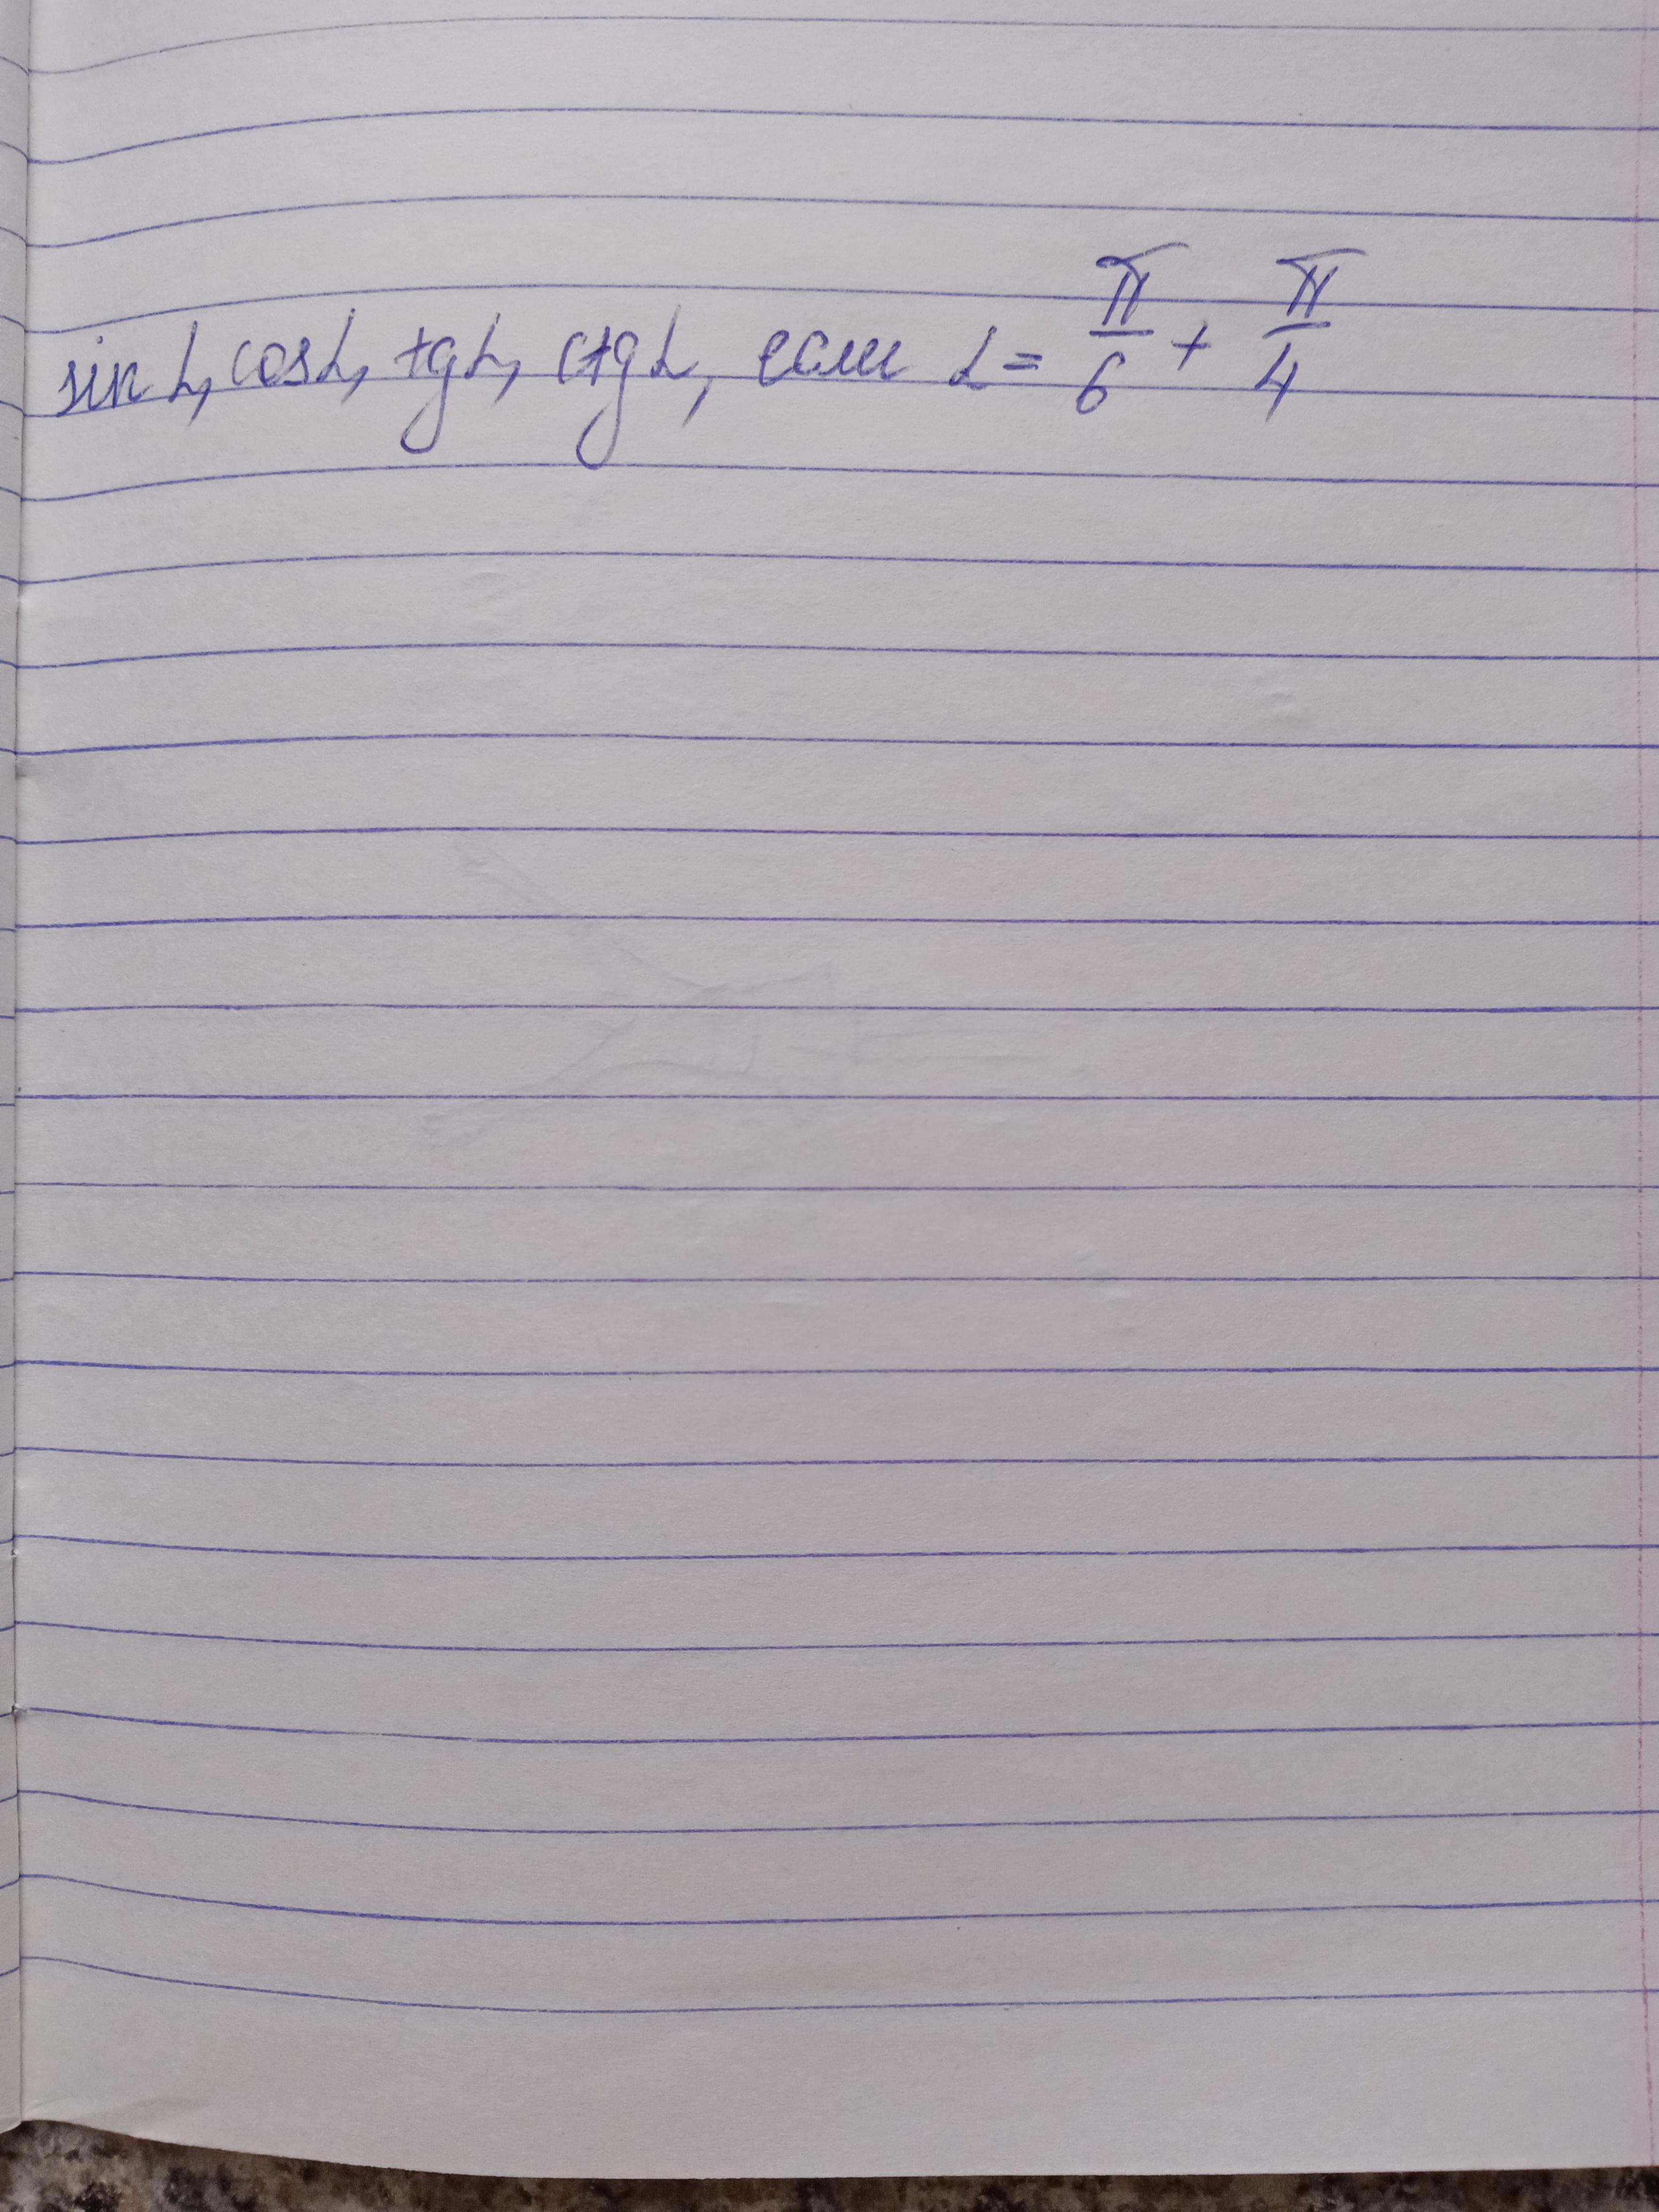 sin α, cos α, tg α, ctg α, если α = π/6 + π/4